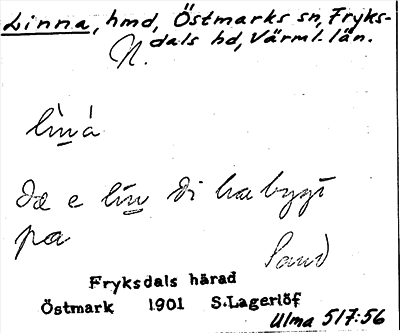 Linna, hmd, Östmarks sn, Fryks-
dals hd, Värml. län.
N.
lìn̲á
dæ e lín̲ di ha bygt
pa
Sand
Fryksdals härad
Östmark 1901 S.Lagerlöf
Ulma 517:56